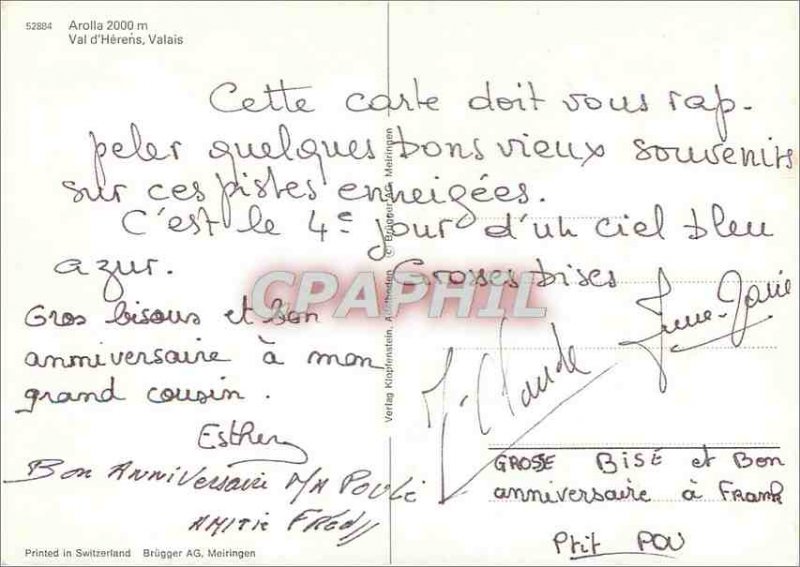 52884 Arolla 2000 m
Val d'Hérens, Valais
Cette carte doit vous rap-
peler quelques bons vieux souvenirs
sur ces pistes enneigées.
C'est le 4e jour d'un ciel bleu
azur. Grosses bises
CPAPHIL
Gros bisous et bon
anniversaire à mon
grand cousin.
Esther
J-Claude
Bon Anniversaire MA POULE
AMITIE FRED
GROSSE BISE et Bon
anniversaire à Frank
Ptit POU
Verlag Klopfenstein, Adelboden © Brügger AG, Meiringen
Printed in Switzerland Brügger AG, Meiringen